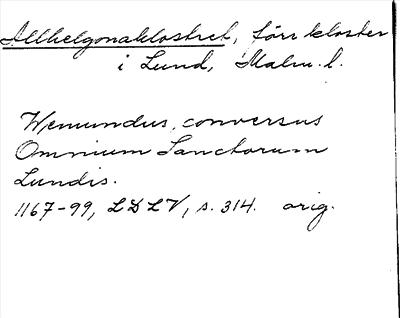 Allhelgonaklostret, förr kloster
i Lund, Malm. l.
Wemundus, conversus
Omnium Sanctorum
Lundis.
1167-99, LDLV, s. 314. orig.